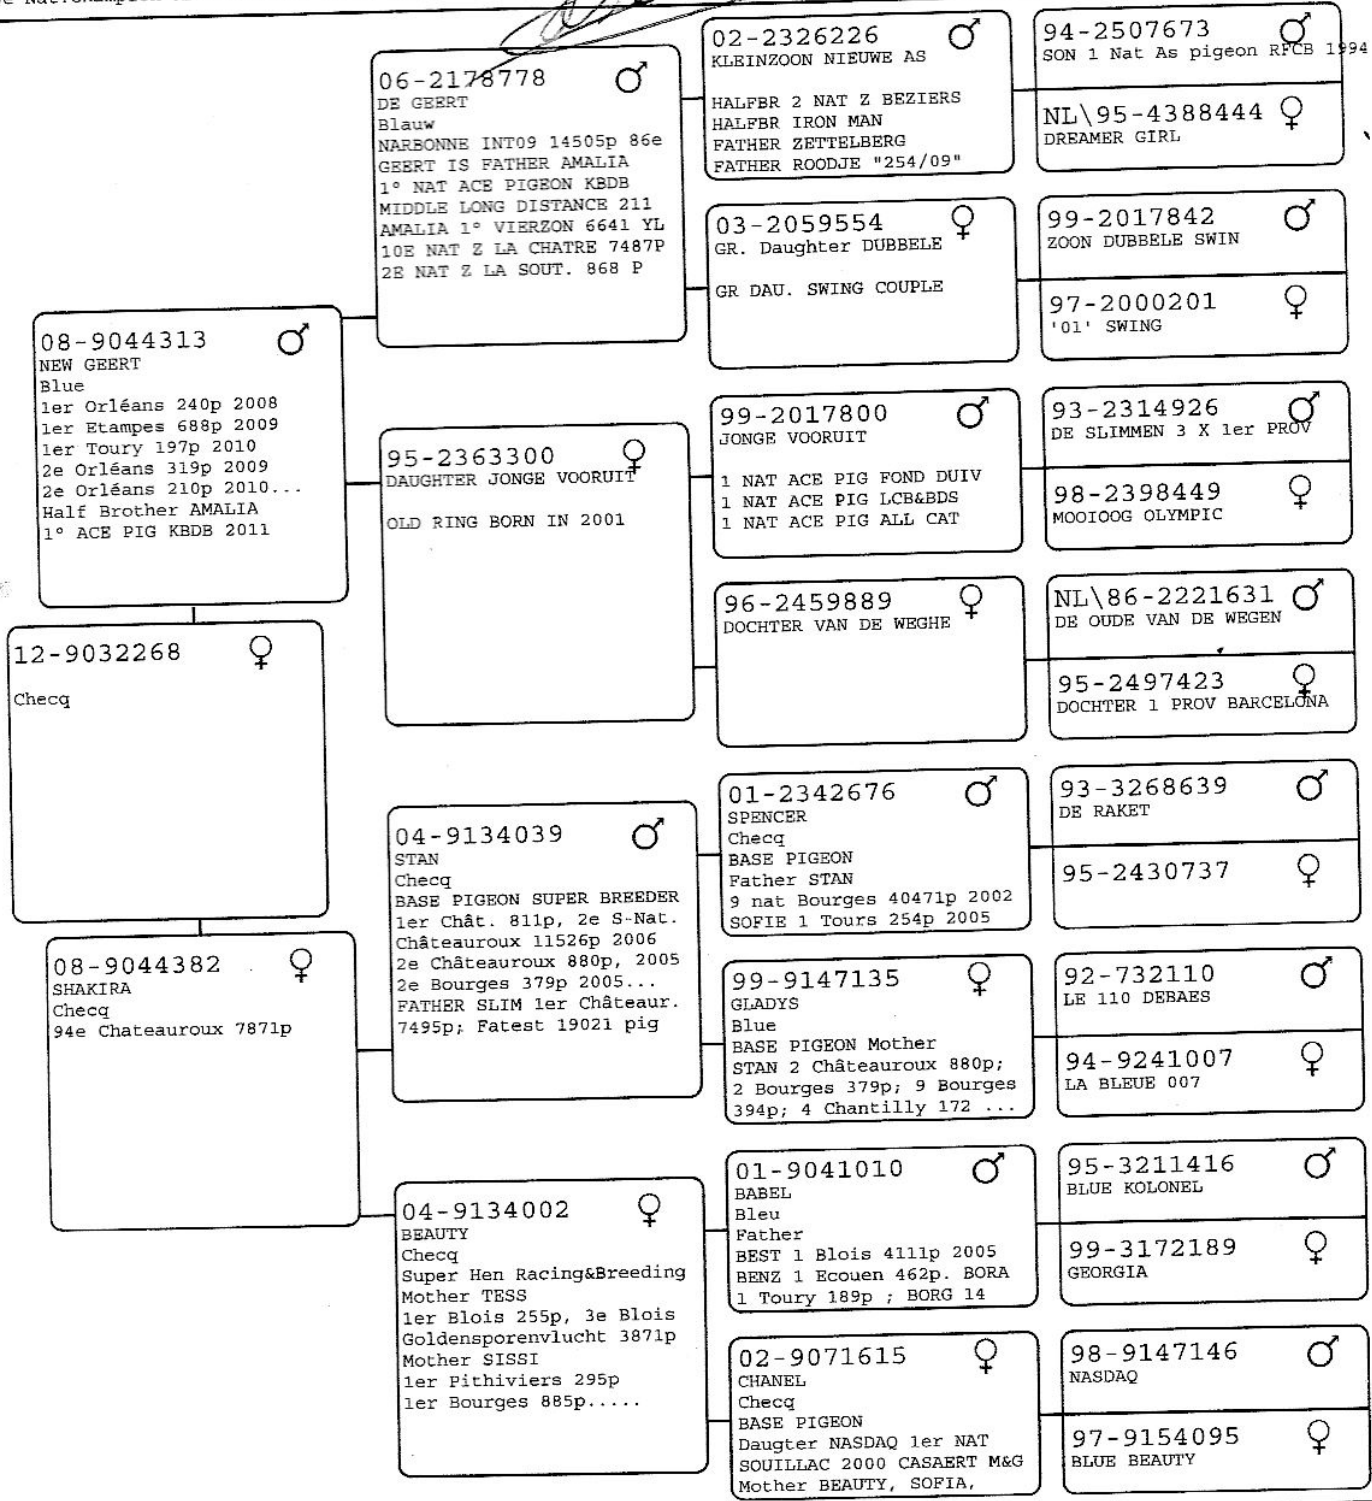 12-9032268
Checq
08-9044313
NEW GEERT
Blue
1er Orléans 240p 2008
1er Etampes 688p 2009
1er Toury 197p 2010
2e Orléans 319p 2009
2e Orléans 210p 2010...
Half Brother AMALIA
1° ACE PIG KBDB 2011
08-9044382
SHAKIRA
Checq
94e Chateauroux 7871p
06-2178778
DE GEERT
Blauw
NARBONNE INT09 14505p 86e
GEERT IS FATHER AMALIA
1° NAT ACE PIGEON KBDB
MIDDLE LONG DISTANCE 211
AMALIA 1° VIERZON 6641 YL
10E NAT Z LA CHATRE 7487P
2E NAT Z LA SOUT. 868 P
95-2363300
DAUGHTER JONGE VOORUIT
OLD RING BORN IN 2001
04-9134039
STAN
Checq
BASE PIGEON SUPER BREEDER
1er Chât. 811p, 2e S-Nat.
Châteauroux 11526p 2006
2e Châteauroux 880p, 2005
2e Bourges 379p 2005...
FATHER SLIM 1er Châteaur.
7495p; Fatest 19021 pig
04-9134002
BEAUTY
Checq
Super Hen Racing&Breeding
Mother TESS
1er Blois 255p, 3e Blois
Goldensporenvlucht 3871p
Mother SISSI
1er Pithiviers 295p
1er Bourges 885p.....
02-2326226
KLEINZOON NIEUWE AS
HALFBR 2 NAT Z BEZIERS
HALFBR IRON MAN
FATHER ZETTELBERG
FATHER ROODJE "254/09"
03-2059554
GR. Daughter DUBBELE
GR DAU. SWING COUPLE
99-2017800
JONGE VOORUIT
1 NAT ACE PIG FOND DUIV
1 NAT ACE PIG LCB&BDS
1 NAT ACE PIG ALL CAT
96-2459889
DOCHTER VAN DE WEGHE
01-2342676
SPENCER
Checq
BASE PIGEON
Father STAN
9 nat Bourges 40471p 2002
SOFIE 1 Tours 254p 2005
99-9147135
GLADYS
Blue
BASE PIGEON Mother
STAN 2 Châteauroux 880p;
2 Bourges 379p; 9 Bourges
394p; 4 Chantilly 172 ...
01-9041010
BABEL
Bleu
Father
BEST 1 Blois 4111p 2005
BENZ 1 Ecouen 462p. BORA
1 Toury 189p ; BORG 14
02-9071615
CHANEL
Checq
BASE PIGEON
Daugter NASDAQ 1er NAT
SOUILLAC 2000 CASAERT M&G
Mother BEAUTY, SOFIA,
94-2507673
SON 1 Nat As pigeon RFCB 1994
NL\95-4388444
DREAMER GIRL
99-2017842
ZOON DUBBELE SWIN
97-2000201
'01' SWING
93-2314926
DE SLIMMEN 3 X 1er PROV
98-2398449
MOOIOOG OLYMPIC
NL\86-2221631
DE OUDE VAN DE WEGEN
95-2497423
DOCHTER 1 PROV BARCELONA
93-3268639
DE RAKET
95-2430737
92-732110
LE 110 DEBAES
94-9241007
LA BLEUE 007
95-3211416
BLUE KOLONEL
99-3172189
GEORGIA
98-9147146
NASDAQ
97-9154095
BLUE BEAUTY